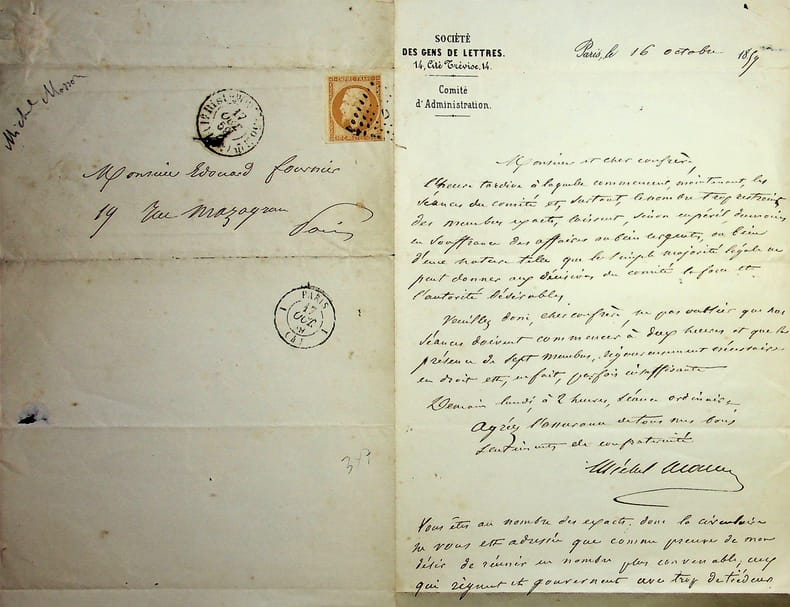 Michel Masson
EMPIRE FRANC
17
OCT
59
Monsieur Edouard Fournier
19 Rue Mazagran
Paris
PARIS
17
OCT
SOCIÉTÉ
DES GENS DE LETTRES.
14, Cité Trévise, 14.
Comité
d'Administration.
Paris, le 16 octobre 1859
Monsieur et cher confrère,
l'heure tardive à laquelle commencent, maintenant, les
séances du comité et, surtout, le nombre trop restreint
des membres exacts, laissent, sinon en péril du moins
en souffrance des affaires ou bien urgentes, ou bien
d'une nature telle que la simple majorité légale ne
peut donner aux décisions du comité la force et
l'autorité désirables.
Veuillez donc, cher confrère, ne pas oublier que nos
séances doivent commencer à deux heures et que la
présence de sept membres, rigoureusement nécessaire
en droit est, en fait, parfois insuffisante
Demain lundi, à 2 heures, séance ordinaire
Agréez l'assurance de tous mes bons
sentiments de confraternité
Michel Masson
Vous êtes au nombre des exacts, donc la circulaire
ne vous est adressée que comme preuve de mon
désir de réunir en nombre plus convenable, ceux
qui règnent et gouvernent avec trop de tiédeur.